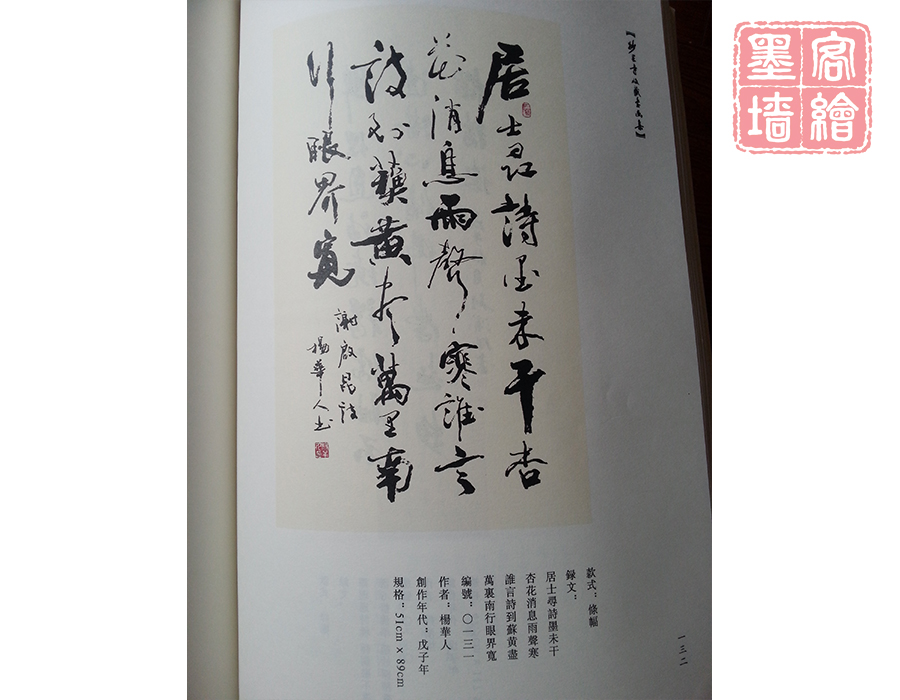 居士尋詩墨未干杏
花消息雨聲寒誰言
詩到蘇黃盡萬里南
行眼界寬
謝啟昆詩
楊華人書
款式：條幅
録文：
居士尋詩墨未干
杏花消息雨聲寒
誰言詩到蘇黃盡
萬裏南行眼界寬
編號：〇一三一
作者：楊華人
創作年代：戊子年
規格：51cm×89cm
一三二
客繪
墨墙